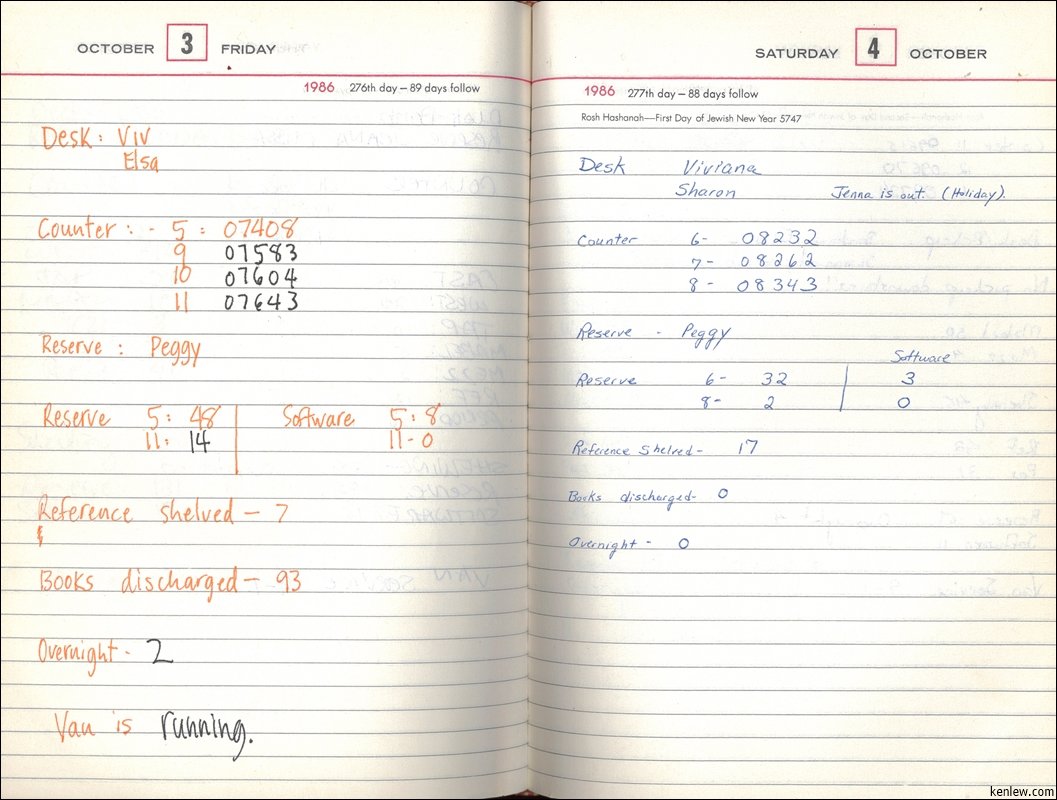 OCTOBER 3 FRIDAY
1986 276th day — 89 days follow
Desk: Viv
Elsa
Counter: - 5: 07408
9 07583
10 07604
11 07643
Reserve: Peggy
Reserve 5: 48 Software 5: 8
11: 14 11-0
Reference shelved — 7
Books discharged — 93
Overnight - 2
Van is running.
SATURDAY 4 OCTOBER
1986 277th day — 88 days follow
Rosh Hashanah—First Day of Jewish New Year 5747
Desk Viviana
Sharon Jenna is out. (Holiday).
Counter 6- 08232
7- 08262
8- 08343
Reserve - Peggy
Software
Reserve 6- 32 3
8- 2 0
Reference Shelved- 17
Books discharged- 0
Overnight - 0
kenlew.com